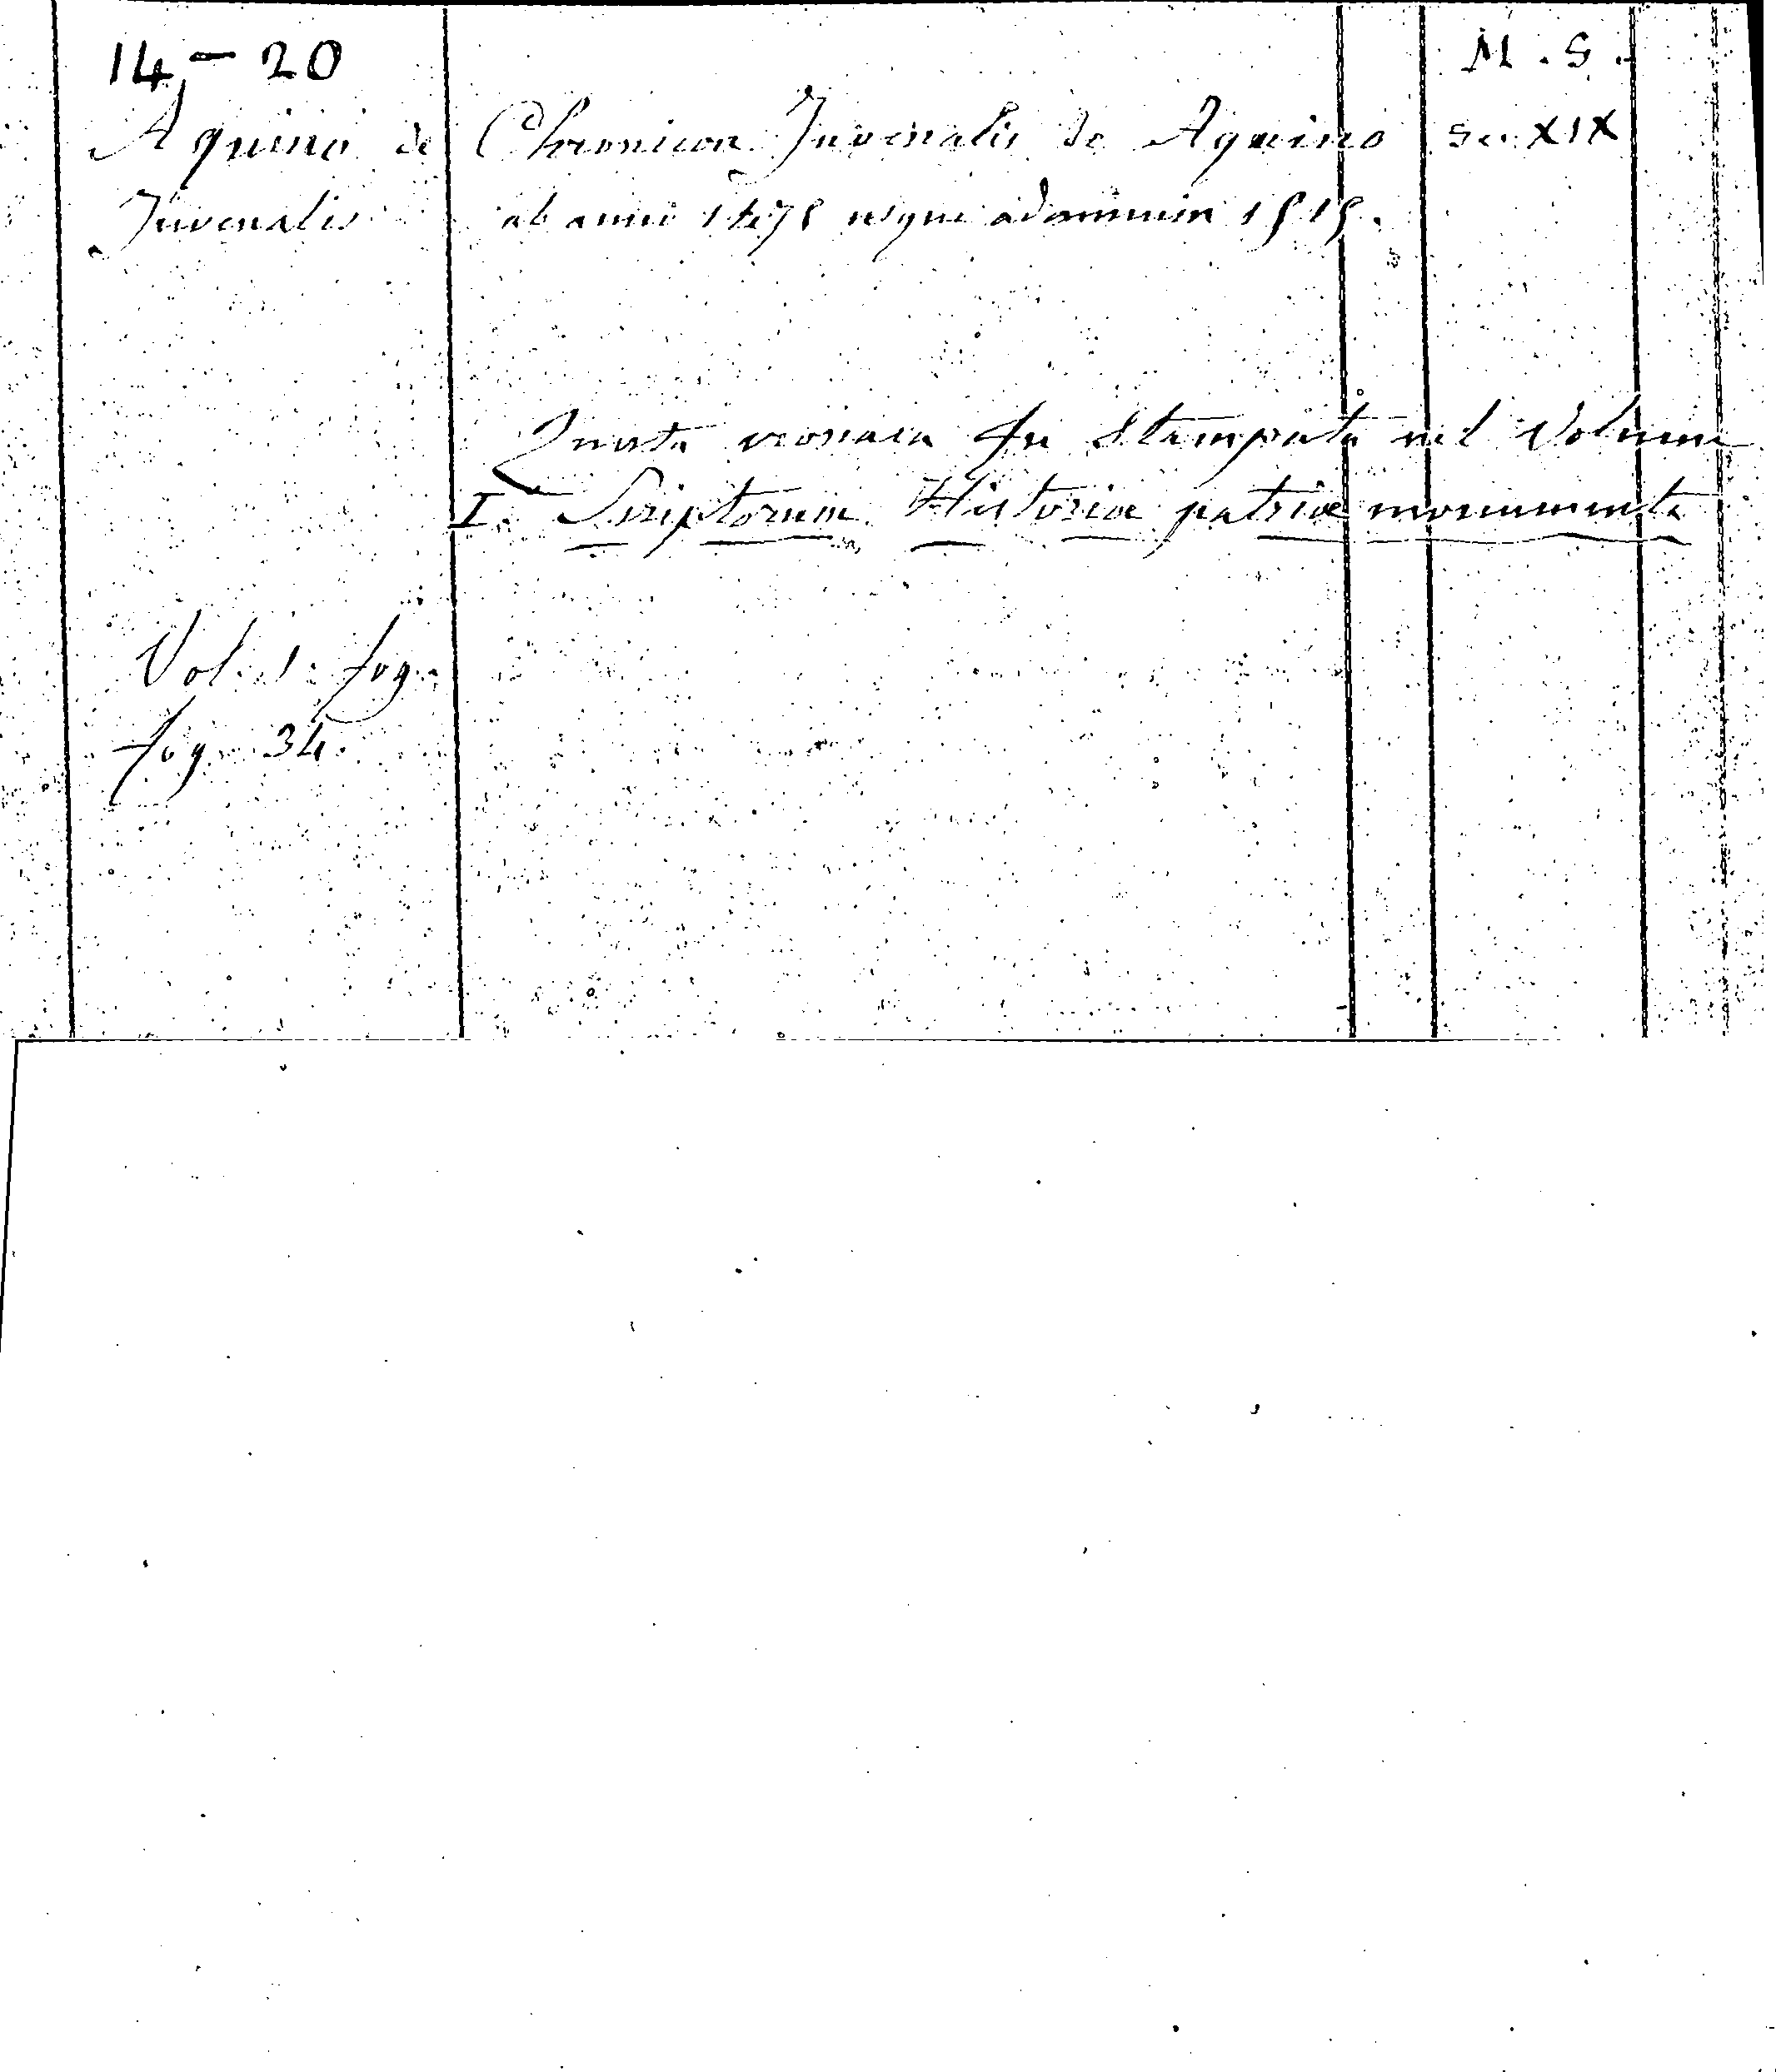 14 - 20
M. S.
Aquino de
Chronicon Juvenalis de Aquino
sec. XIX
Juvenalis
ab anno 1475 usque ad annum 1515.
Questa cronaca fu stampata nel Volume
I. Scriptorum Historiæ patriæ monumenta
Vol. 1. fog.
fog. 34.